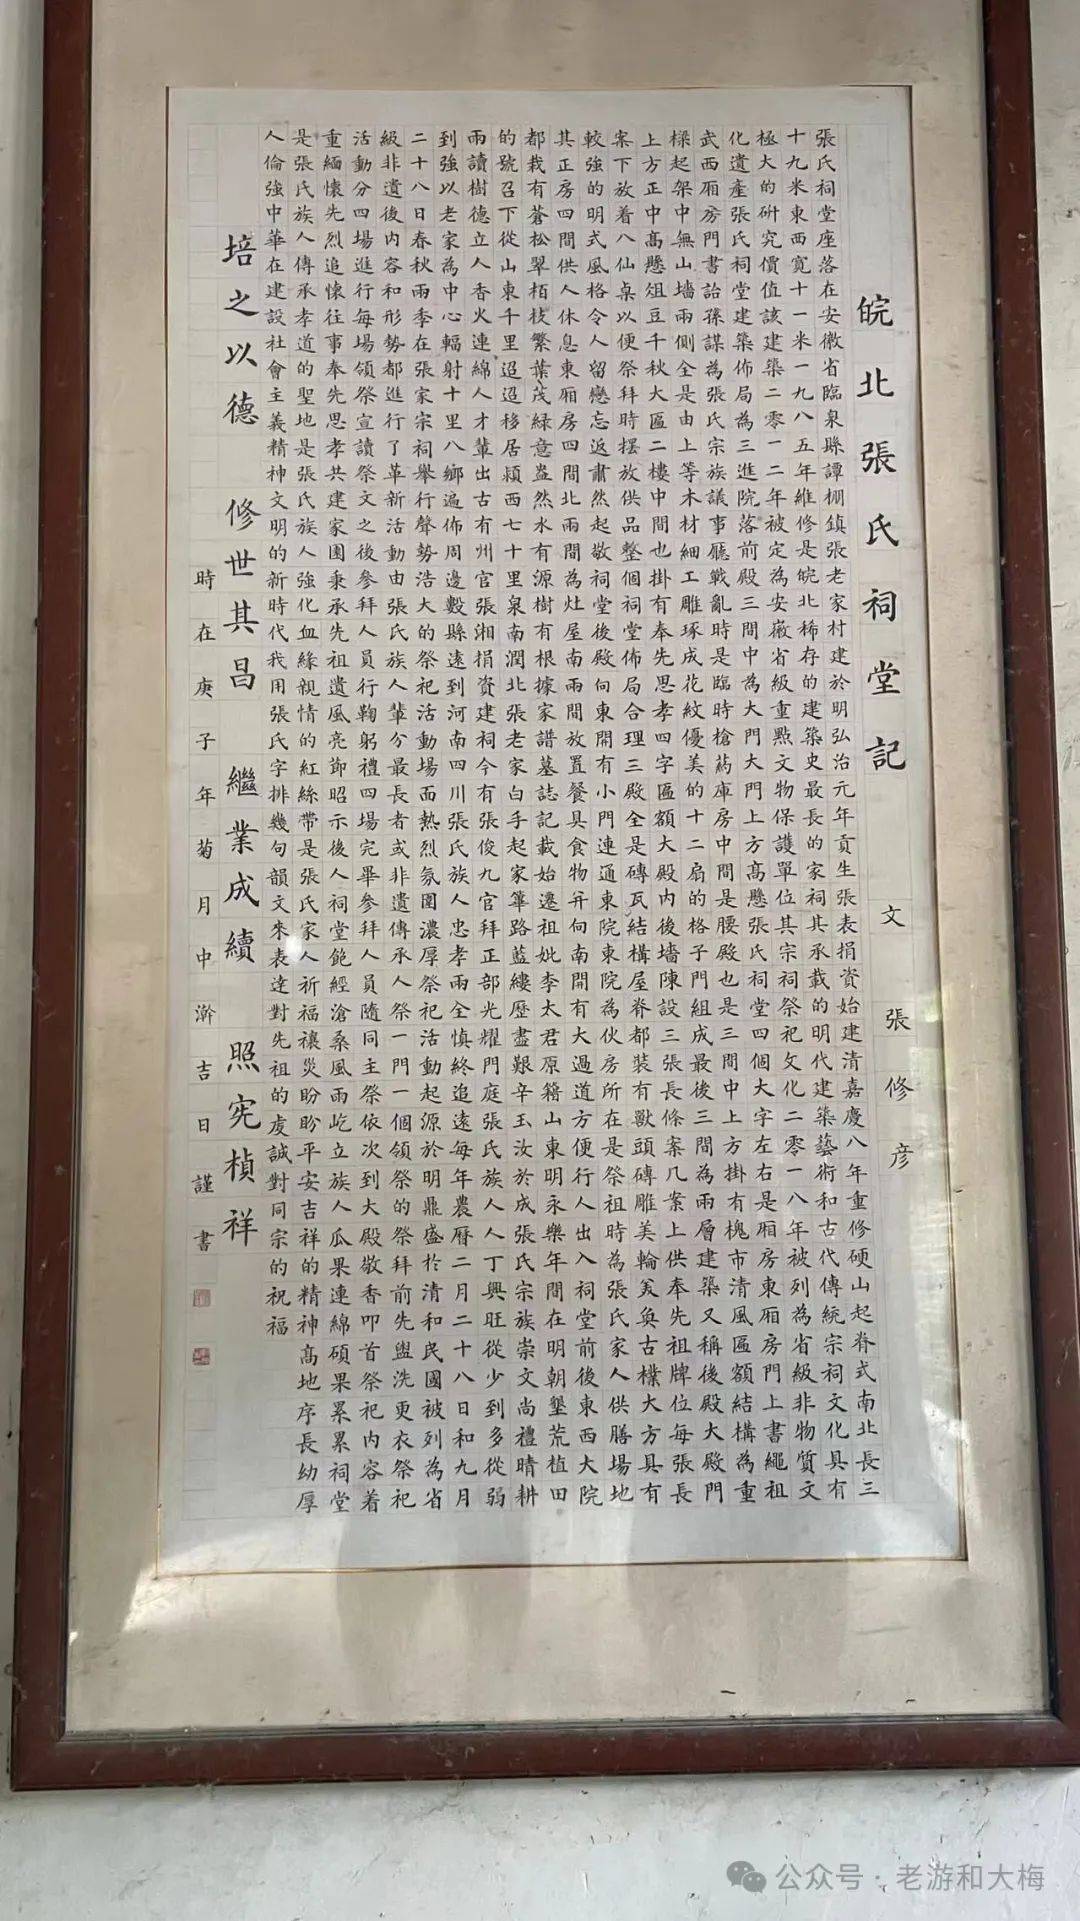 皖北張氏祠堂記 文 張修彦
張氏祠堂座落在安徽省臨泉縣譚棚鎮張老家村建於明弘治元年貢生張表捐資始建清嘉慶八年重修硬山起脊式南北長三
十九米東西寬十一米一九八五年維修是皖北稀存的建築史最長的家祠其承載的明代建築藝術和古代傳統宗祠文化具有
極大的研究價值該建築二零一二年被定為安徽省級重點文物保護單位其宗祠祭祀文化二零一八年被列為省級非物質文
化遺產張氏祠堂建築佈局為三進院落前殿三間中為大門大門上方高懸張氏祠堂四個大字左右是厢房東厢房門上書繩祖
武西厢房門書詒孫謀為張氏宗族議事廳戰亂時是臨時槍葯庫房中間是腰殿也是三間中上方掛有槐市清風區額結構為重
樑起架中無山墻兩側全是由上等木材細工雕琢成花紋優美的十二扇的格子門組成最後三間為兩層建築又稱後殿大殿門
上方正中高懸俎豆千秋大區二樓中間也掛有奉先思孝四字區額大殿内後墻陳設三張長條案几案上供奉先祖牌位每張長
案下放着八仙桌以便祭拜時擺放供品整個祠堂佈局合理三殿全是磚瓦結構屋脊都装有獸頭磚雕美輪美奐古樸大方具有
較強的明式風格令人留戀忘返肅然起敬祠堂後殿向東開有小門連通東院東院為伙房所在是祭祖時為張氏家人供膳場地
其正房四間供人休息東厢房四間北兩間為灶屋南兩間放置餐具食物并向南開有大過道方便行人出入祠堂前後東西大院
都栽有蒼松翠栢枝繁葉茂緑意盎然水有源樹有根據家譜墓誌記載始遷祖妣李太君原籍山東明永樂年間在明朝墾荒植田
的號召下從山東千里迢迢移居潁西七十里泉南潤北張老家白手起家篳路藍縷歷盡艱辛玉汝於成張氏宗族崇文尚禮晴耕
雨讀樹德立人香火連綿人才輩出古有州官張湘捐資建祠今有張俊九官拜正部光耀門庭張氏族人人丁興旺從少到多從弱
到強以老家為中心輻射十里八鄉遍佈周邊數縣遠到河南四川張氏族人忠孝兩全慎終追遠每年農曆二月二十八日和九月
二十八日春秋兩季在張家宗祠舉行聲勢浩大的祭祀活動場面熱烈氛圍濃厚祭祀活動起源於明鼎盛於清和民國被列為省
級非遺後内容和形勢都進行了革新活動由張氏族人輩分最長者或非遺傳承人祭一門一個領祭的祭拜前先盥洗更衣祭祀
活動分四場進行每場領祭宣讀祭文之後參拜人員行鞠躬禮四場完畢參拜人員隨同主祭依次到大殿敬香叩首祭祀内容着
重緬懷先烈追懷往事奉先思孝共建家園秉承先祖遺風亮節昭示後人祠堂飽經滄桑風雨屹立族人瓜果連綿碩果累累祠堂
是張氏族人傳承孝道的聖地是張氏族人強化血緣親情的紅絲帶是張氏家人祈福禳災盼盼平安吉祥的精神高地序長幼厚
人倫強中華在建設社會主義精神文明的新時代我用張氏字排幾句韻文來表達對先祖的虔誠對同宗的祝福
培之以德 修世其昌 繼業成續 照宪楨祥
時在庚子年菊月中澣吉日謹書
公众号·老游和大梅